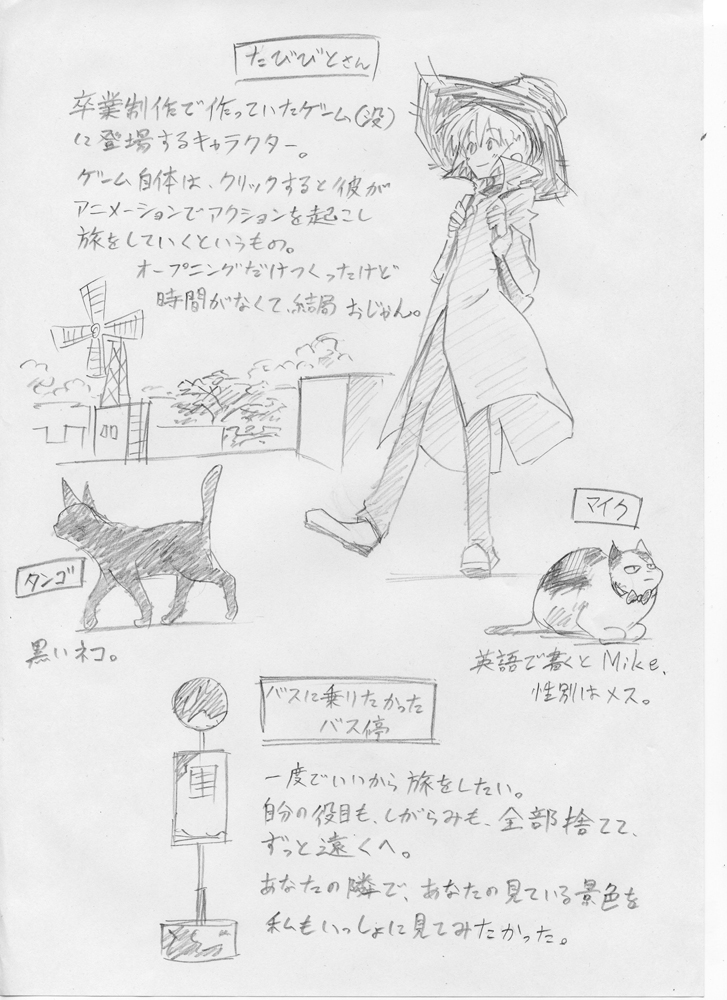 たびびとさん
卒業制作で作っていたゲーム(没)
に登場するキャラクター。
ゲーム自体は、クリックすると彼が
アニメーションでアクションを起こし
旅をしていくというもの。
オープニングだけつくったけど
時間がなくて、結局 おじゃん。
タンゴ
黒いネコ。
マイク
英語で書くと Mike、
性別はメス。
バスに乗りたかった
バス停
一度でいいから 旅をしたい。
自分の役目も、しがらみも、全部捨てて、
ずっと遠くへ。
あなたの隣で、あなたの見ている景色を
私もいっしょに見てみたかった。